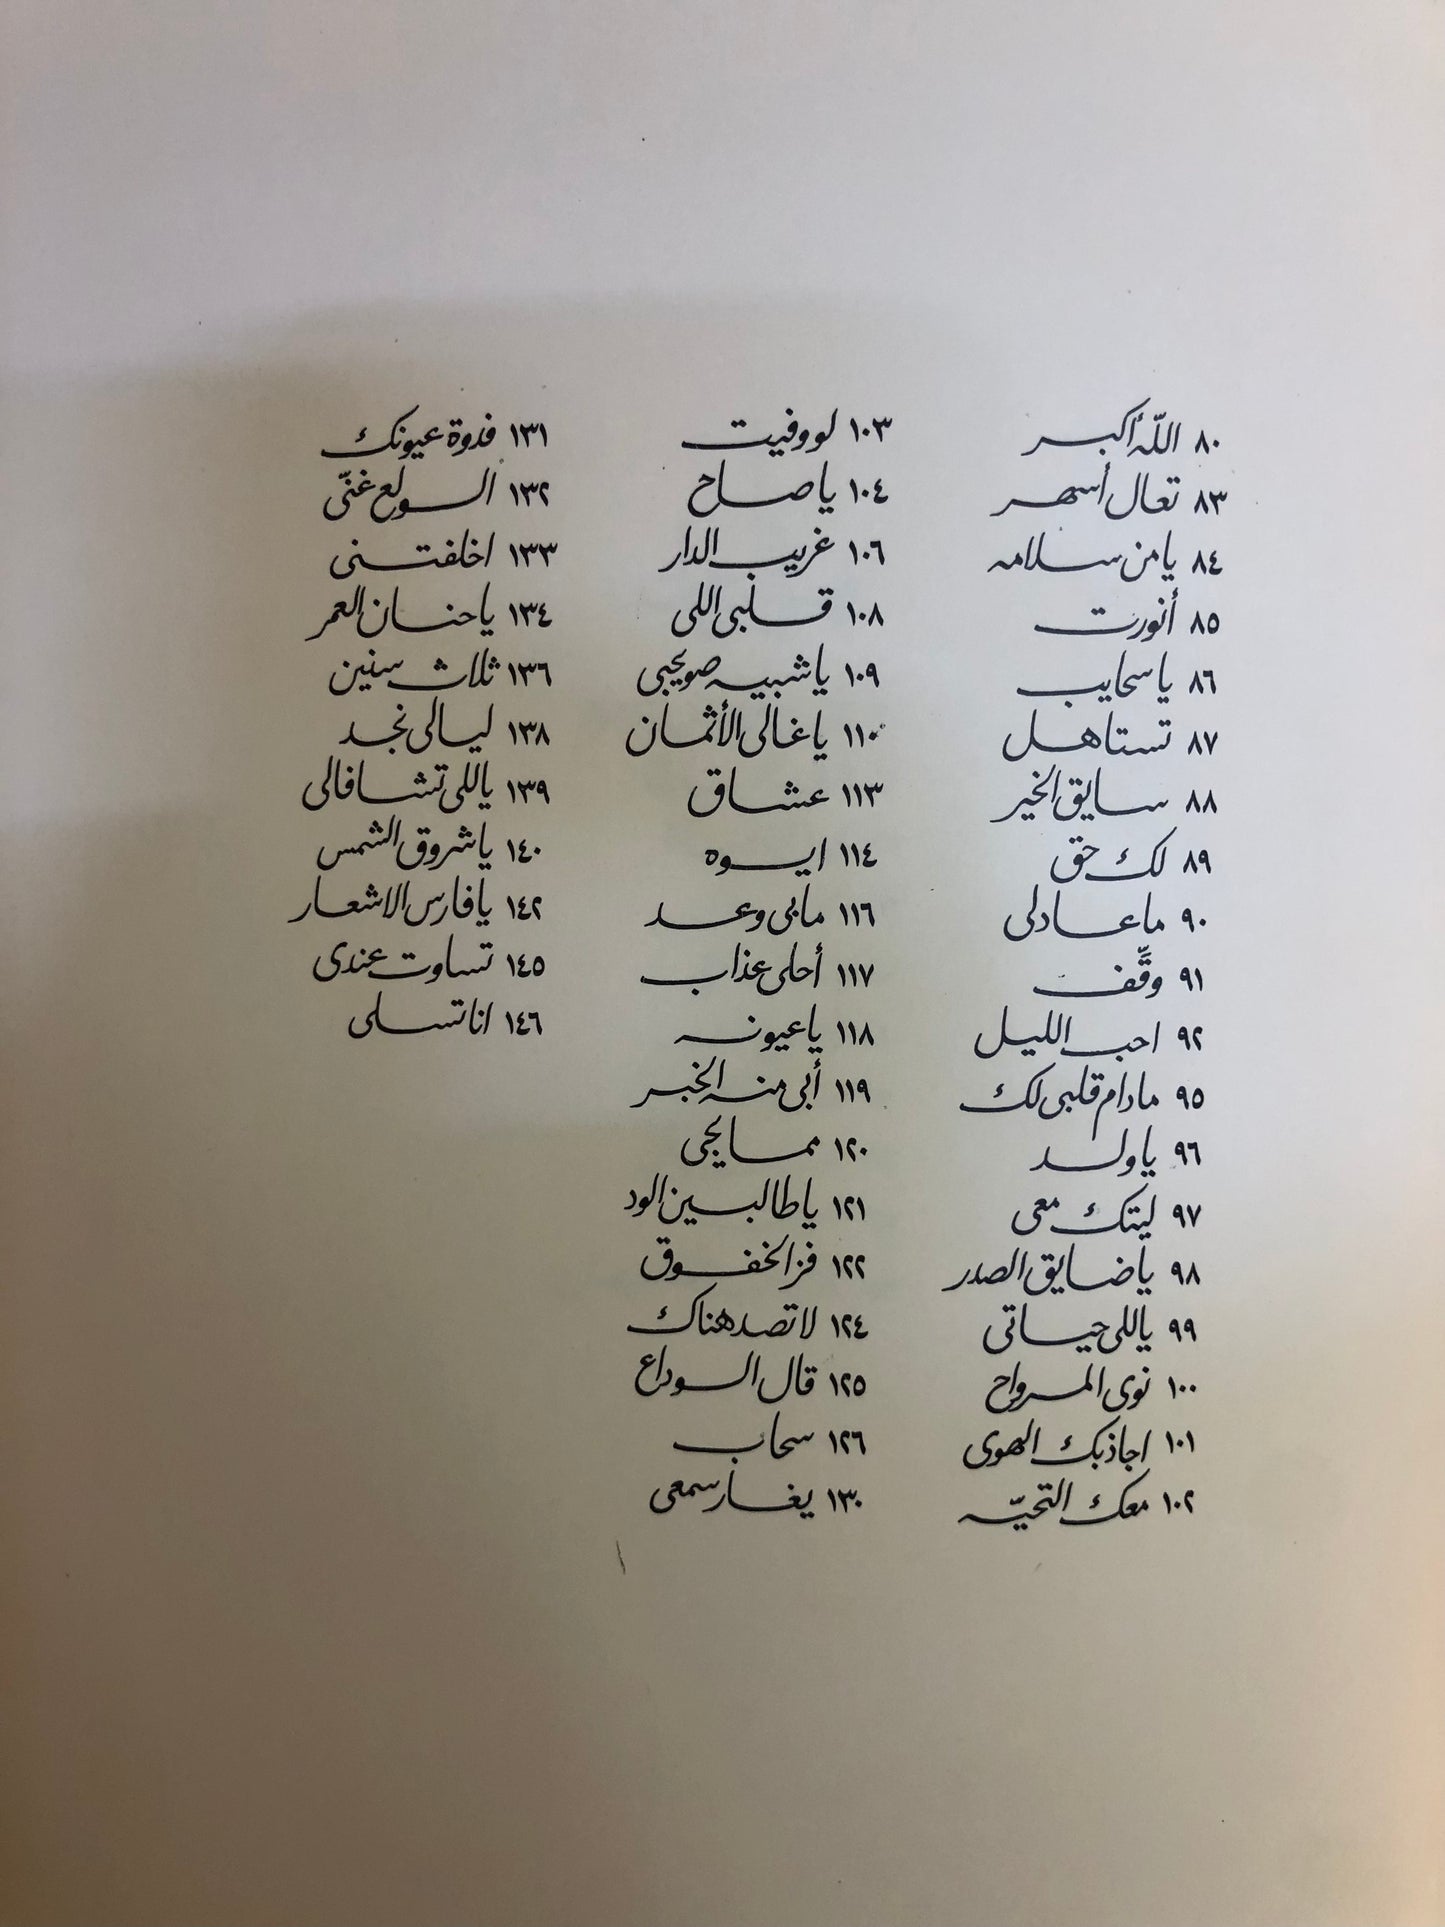 ٨٠ اللّه أكبر
٨٣ تعال أسهر
٨٤ يا من سلامه
٨٥ أنورت
٨٦ يا سحايب
٨٧ تستاهل
٨٨ سايق الخير
٨٩ لك حق
٩٠ ما عاد لي
٩١ وقِّف
٩٢ احب الليل
٩٥ مادام قلبي لك
٩٦ يا ولد
٩٧ ليتك معي
٩٨ يا ضايق الصدر
٩٩ يا للي حياتي
١٠٠ نوى المرواح
١٠١ اجاذبك الهوى
١٠٢ معك التحيّه
١٠٣ لو وفيت
١٠٤ يا صاح
١٠٦ غريب الدار
١٠٨ قلبي اللي
١٠٩ يا شبيه صويحبي
١١٠ يا غالي الأثمان
١١٣ عشاق
١١٤ ايوه
١١٦ ما بي وعد
١١٧ أحلى عذاب
١١٨ يا عيونه
١١٩ أبي منه الخبر
١٢٠ مما يجي
١٢١ يا طالبين الود
١٢٢ فز الخفوق
١٢٤ لا تصد هناك
١٢٥ قال الوداع
١٢٦ سحاب
١٣٠ يغار سمعي
١٣١ فدوة عيونك
١٣٢ الولع غنّى
١٣٣ اخلفتني
١٣٤ يا حنان العمر
١٣٦ ثلاث سنين
١٣٨ ليالي نجد
١٣٩ ياللي تشافالي
١٤٠ يا شروق الشمس
١٤٢ يا فارس الاشعار
١٤٥ تساوت عندي
١٤٦ انا تسلى